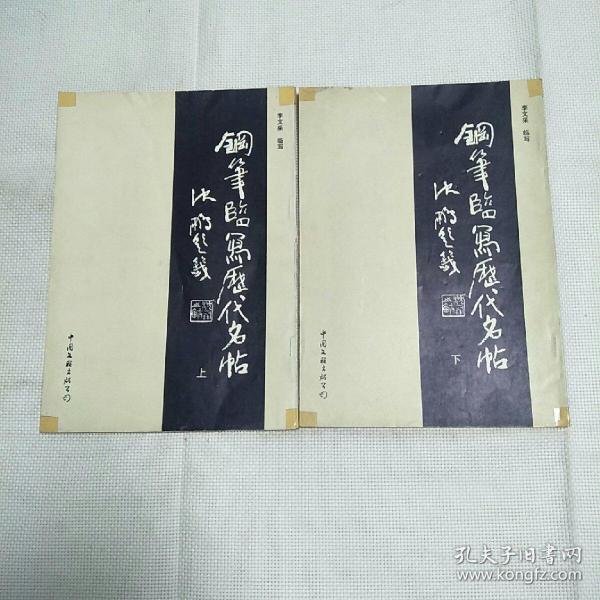 李文采 临写
鋼筆臨寫歷代名帖
沈鹏题籤
上
中国文联出版公司
李文采 临写
鋼筆臨寫歷代名帖
沈鹏题籤
下
中国文联出版公司
孔夫子旧书网
www.kongfz.com